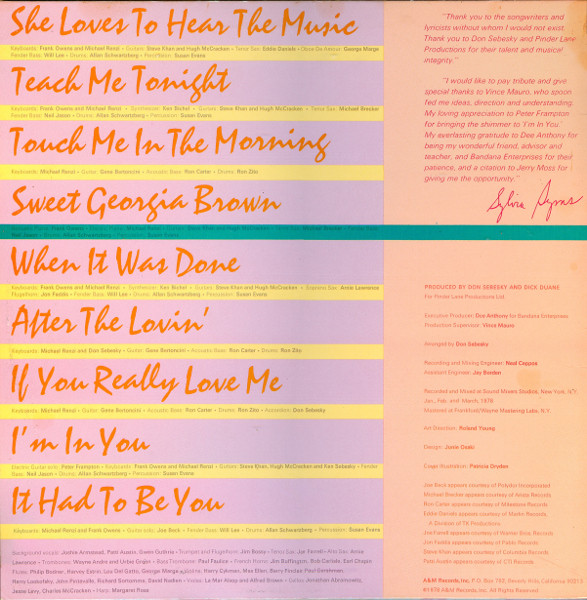 She Loves To Hear The Music
Keyboards: Frank Owens and Michael Renzi · Guitars: Steve Khan and Hugh McCracken · Tenor Sax: Eddie Daniels · Oboe Da Amour: George Marge
Fender Bass: Will Lee · Drums: Allan Schwartzberg · Percussion: Susan Evans
Teach Me Tonight
Keyboards: Frank Owens and Michael Renzi · Synthesizer: Ken Bichel · Guitars: Steve Khan and Hugh McCracken · Tenor Sax: Michael Brecker
Fender Bass: Neil Jason · Drums: Allan Schwartzberg · Percussion: Susan Evans
Touch Me In The Morning
Keyboards: Michael Renzi · Guitar: Gene Bertoncini · Acoustic Bass: Ron Carter · Drums: Ron Zito
Sweet Georgia Brown
When It Was Done
Keyboards: Frank Owens and Michael Renzi · Synthesizer: Ken Bichel · Guitars: Steve Khan and Hugh McCracken · Soprano Sax: Arnie Lawrence
Flugelhorn: Jon Faddis · Fender Bass: Will Lee · Drums: Allan Schwartzberg · Percussion: Susan Evans
After The Lovin'
Keyboards: Michael Renzi and Don Sebesky · Guitar: Gene Bertoncini · Acoustic Bass: Ron Carter · Drums: Ron Zito
If You Really Love Me
Keyboards: Michael Renzi · Guitar: Gene Bertoncini · Acoustic Bass: Ron Carter · Drums: Ron Zito · Accordion: Don Sebesky
I'm In You
Electric Guitar solo: Peter Frampton · Keyboards: Frank Owens and Michael Renzi · Guitars: Steve Khan, Hugh McCracken and Ken Sebesky · Fender
Bass: Neil Jason · Drums: Allan Schwartzberg · Percussion: Susan Evans
It Had To Be You
Keyboards: Michael Renzi and Frank Owens · Guitar solo: Joe Beck · Fender Bass: Will Lee · Drums: Allan Schwartzberg · Percussion: Susan Evans
Background vocals: Joshie Armstead, Patti Austin, Gwen Guthrie · Trumpet and Flugelhorn: Jim Bossy · Tenor Sax: Joe Farrell · Alto Sax: Arnie
Lawrence · Trombones: Wayne Andre and Urbie Green · Bass Trombone: Paul Faulise · French Horns: Jim Buffington, Bob Carlisle, Earl Chapin
Jesse Levy, Charles McCracken · Harp: Margaret Ross
"Thank you to the songwriters and
lyricists without whom I would not exist.
Thank you to Don Sebesky and Pinder Lane
Productions for their talent and musical
integrity."
"I would like to pay tribute and give
special thanks to Vince Mauro, who spoon
fed me ideas, direction and understanding.
My loving appreciation to Peter Frampton
for bringing the shimmer to 'I'm In You.'
My everlasting gratitude to Dee Anthony for
being my wonderful friend, advisor and
teacher, and Bandana Enterprises for their
patience, and a citation to Jerry Moss for
giving me the opportunity."
Sylvia Syms
PRODUCED BY DON SEBESKY AND DICK DUANE
For Pinder Lane Productions Ltd.
Executive Producer: Dee Anthony for Bandana Enterprises
Production Supervisor: Vince Mauro
Arranged by Don Sebesky
Recording and Mixing Engineer: Neal Ceppos
Assistant Engineer: Jay Borden
Recorded and Mixed at Sound Mixers Studios, New York, N.Y.
Jan., Feb. and March, 1978
Mastered at Frankford/Wayne Mastering Labs, N.Y.
Art Direction: Roland Young
Design: Junie Osaki
Patricia Dryden
Joe Beck appears courtesy of Polydor Incorporated
Michael Brecker appears courtesy of Arista Records
Ron Carter appears courtesy of Milestone Records
Eddie Daniels appears courtesy of Marlin Records,
A Division of TK Productions
Joe Farrell appears courtesy of Warner Bros. Records
Jon Faddis appears courtesy of Pablo Records
Steve Khan appears courtesy of Columbia Records
Patti Austin appears courtesy of CTI Records
A&M Records, Inc. P.O. Box 782, Beverly Hills, California 90213
©1978 A&M Records, Inc. All Rights Reserved.